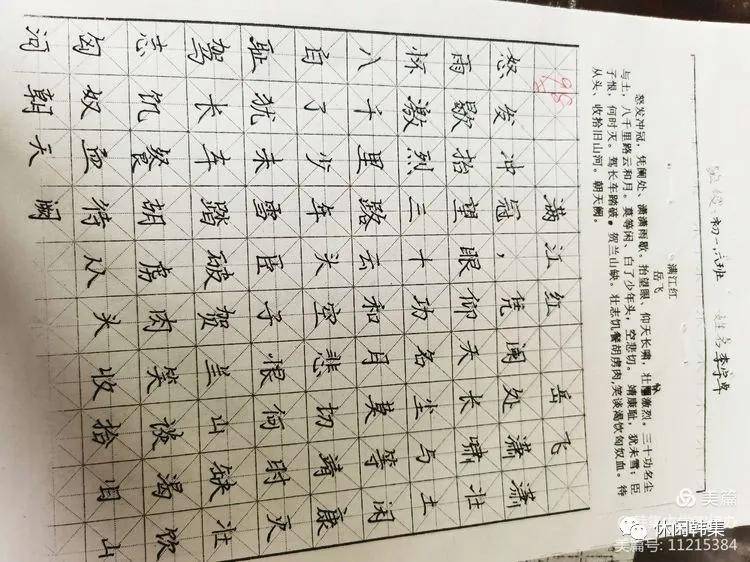 班级 初一六班 姓名 李宇卓
满江红
岳飞
怒发冲冠,凭阑处、潇潇雨歇。抬望眼、仰天长啸,壮怀激烈。三十功名尘
与土,八千里路云和月。莫等闲、白了少年头,空悲切。靖康耻,犹未雪;臣
子恨,何时灭。驾长车踏破,贺兰山缺。壮志饥餐胡虏肉,笑谈渴饮匈奴血。待
从头、收拾旧山河。朝天阙。
满江红 岳飞
怒发冲冠,凭阑处潇潇
雨歇抬望眼仰天长啸壮
怀激烈三十功名尘与土
八千里路云和月莫等闲
白了少年头空悲切靖康
耻犹未雪臣子恨何时灭
驾长车踏破贺兰山缺壮
志饥餐胡虏肉笑谈渴饮
匈奴血待从头收拾旧山
河朝天阙
美篇
休闲韩集
美篇号: 11215384